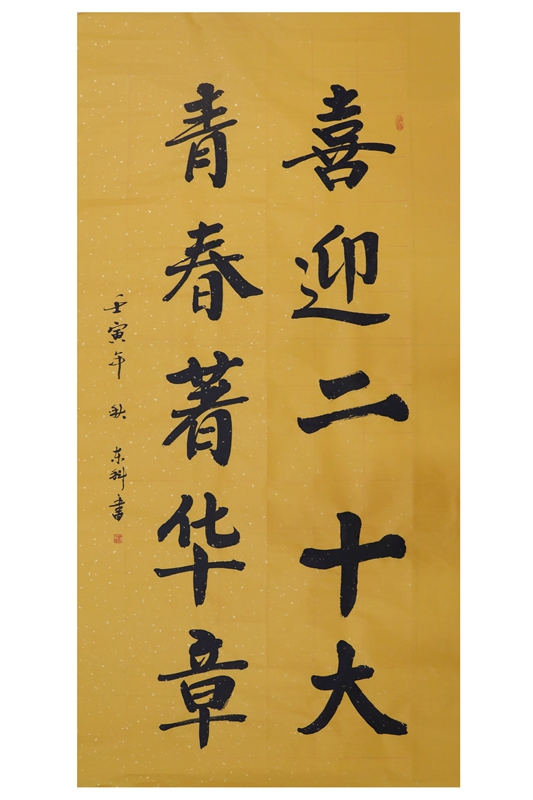 喜迎二十大
青春著华章
壬寅年 秋 东科书